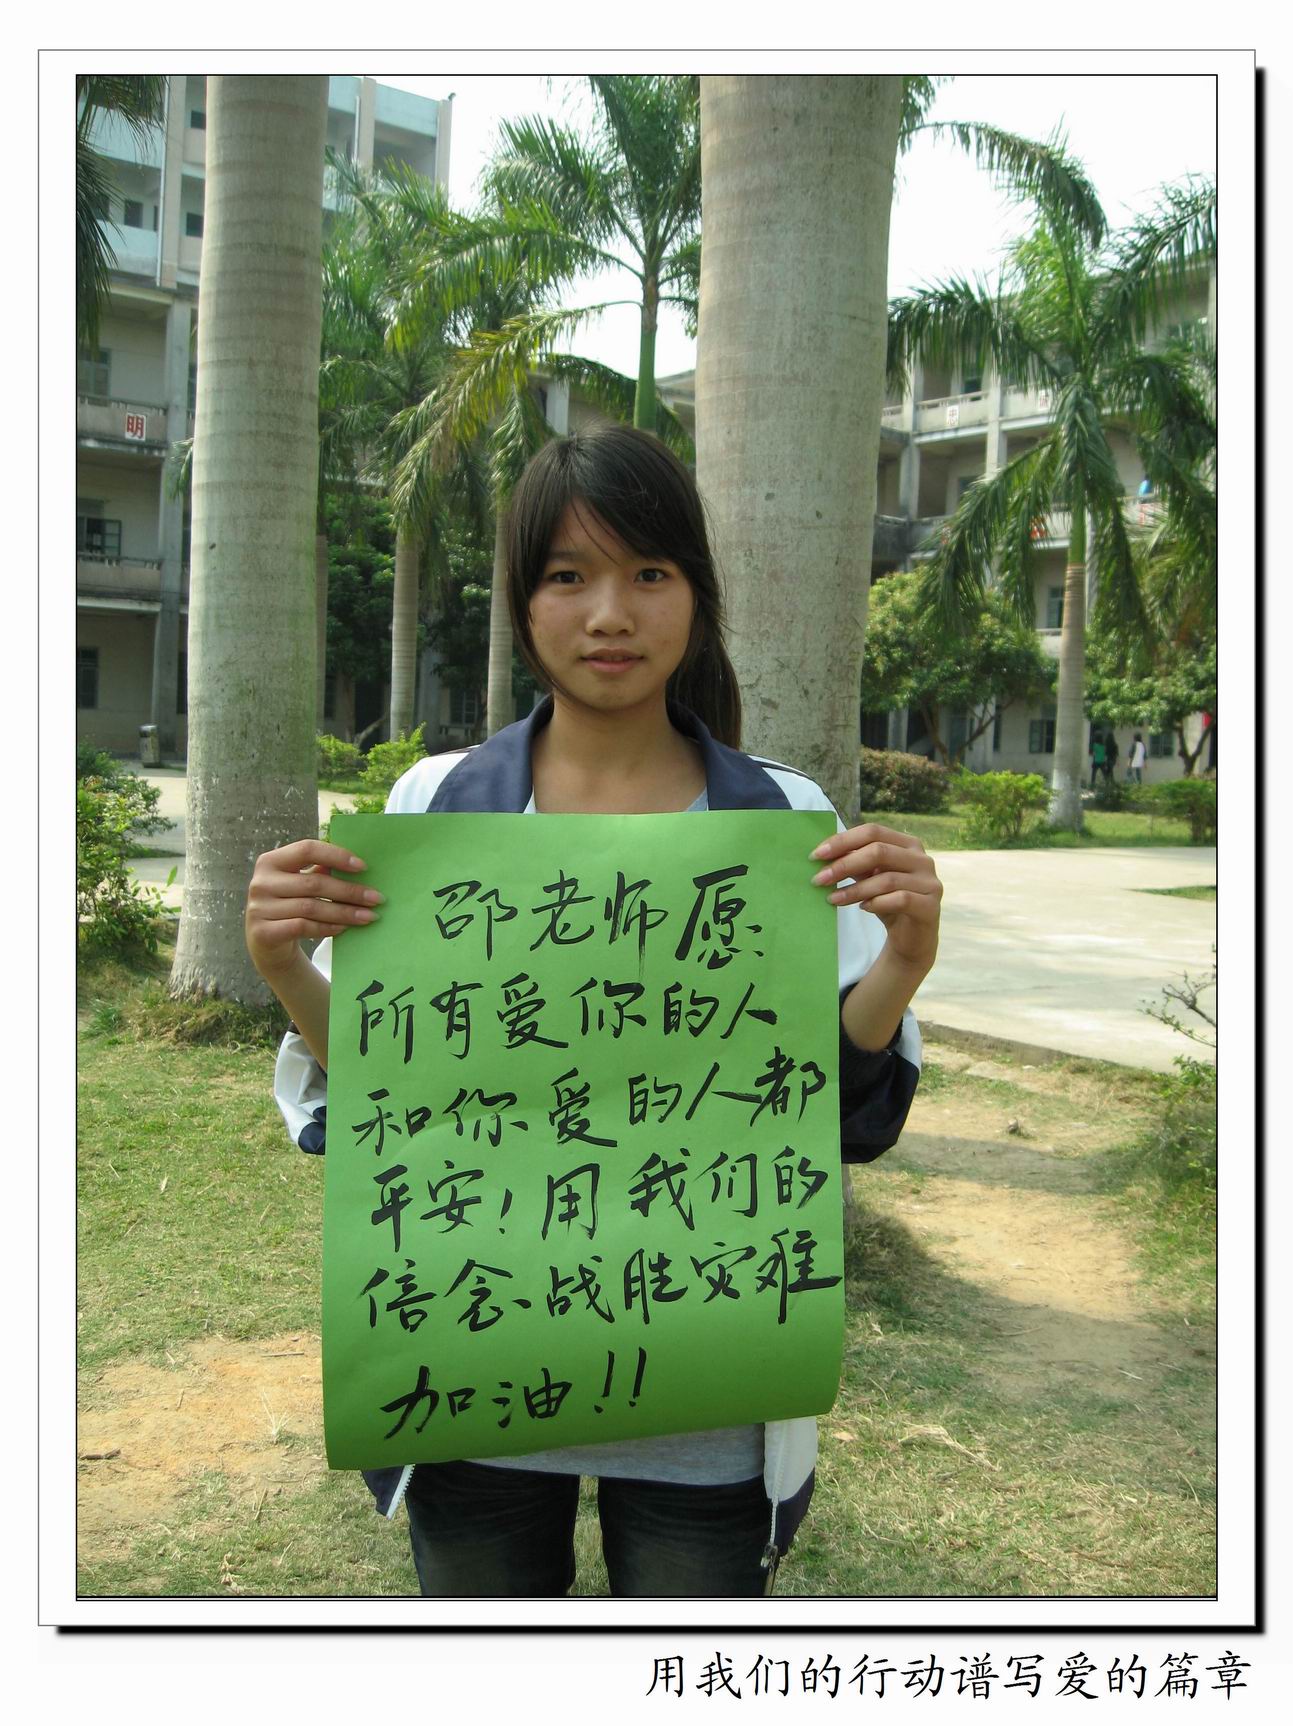 明
忠
诚
邵老师愿
所有爱你的人
和你爱的人都
平安！用我们的
信念战胜灾难
加油！！
用我们的行动谱写爱的篇章